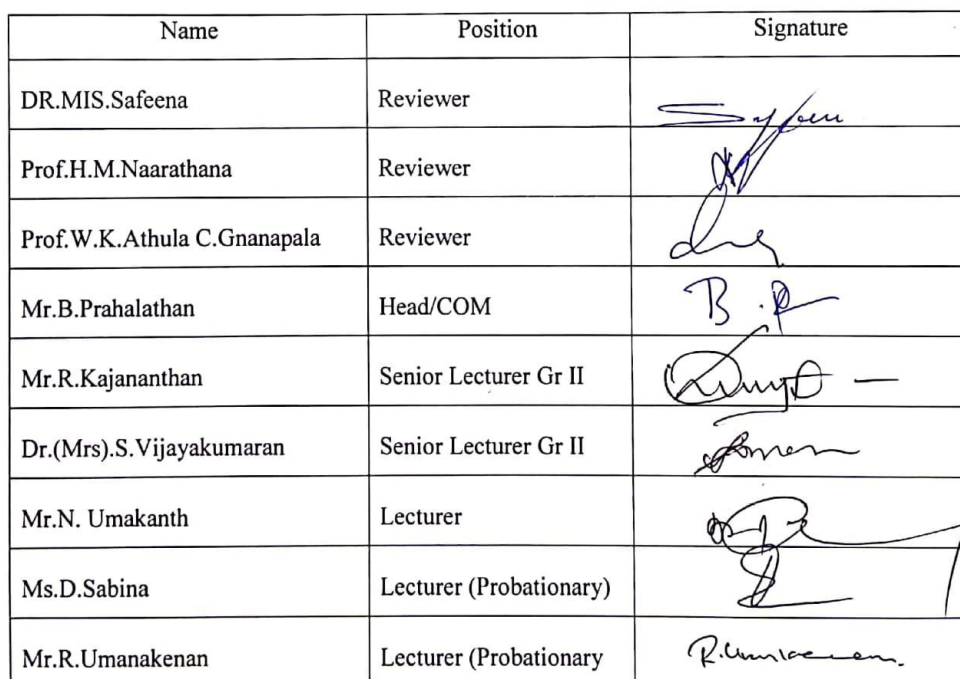 Name Position Signature
DR.MIS.Safeena Reviewer
Prof.H.M.Naarathana Reviewer
Prof.W.K.Athula C.Gnanapala Reviewer
Mr.B.Prahalathan Head/COM B.P
Mr.R.Kajananthan Senior Lecturer Gr II
Dr.(Mrs).S.Vijayakumaran Senior Lecturer Gr II
Mr.N. Umakanth Lecturer
Ms.D.Sabina Lecturer (Probationary)
Mr.R.Umanakenan Lecturer (Probationary